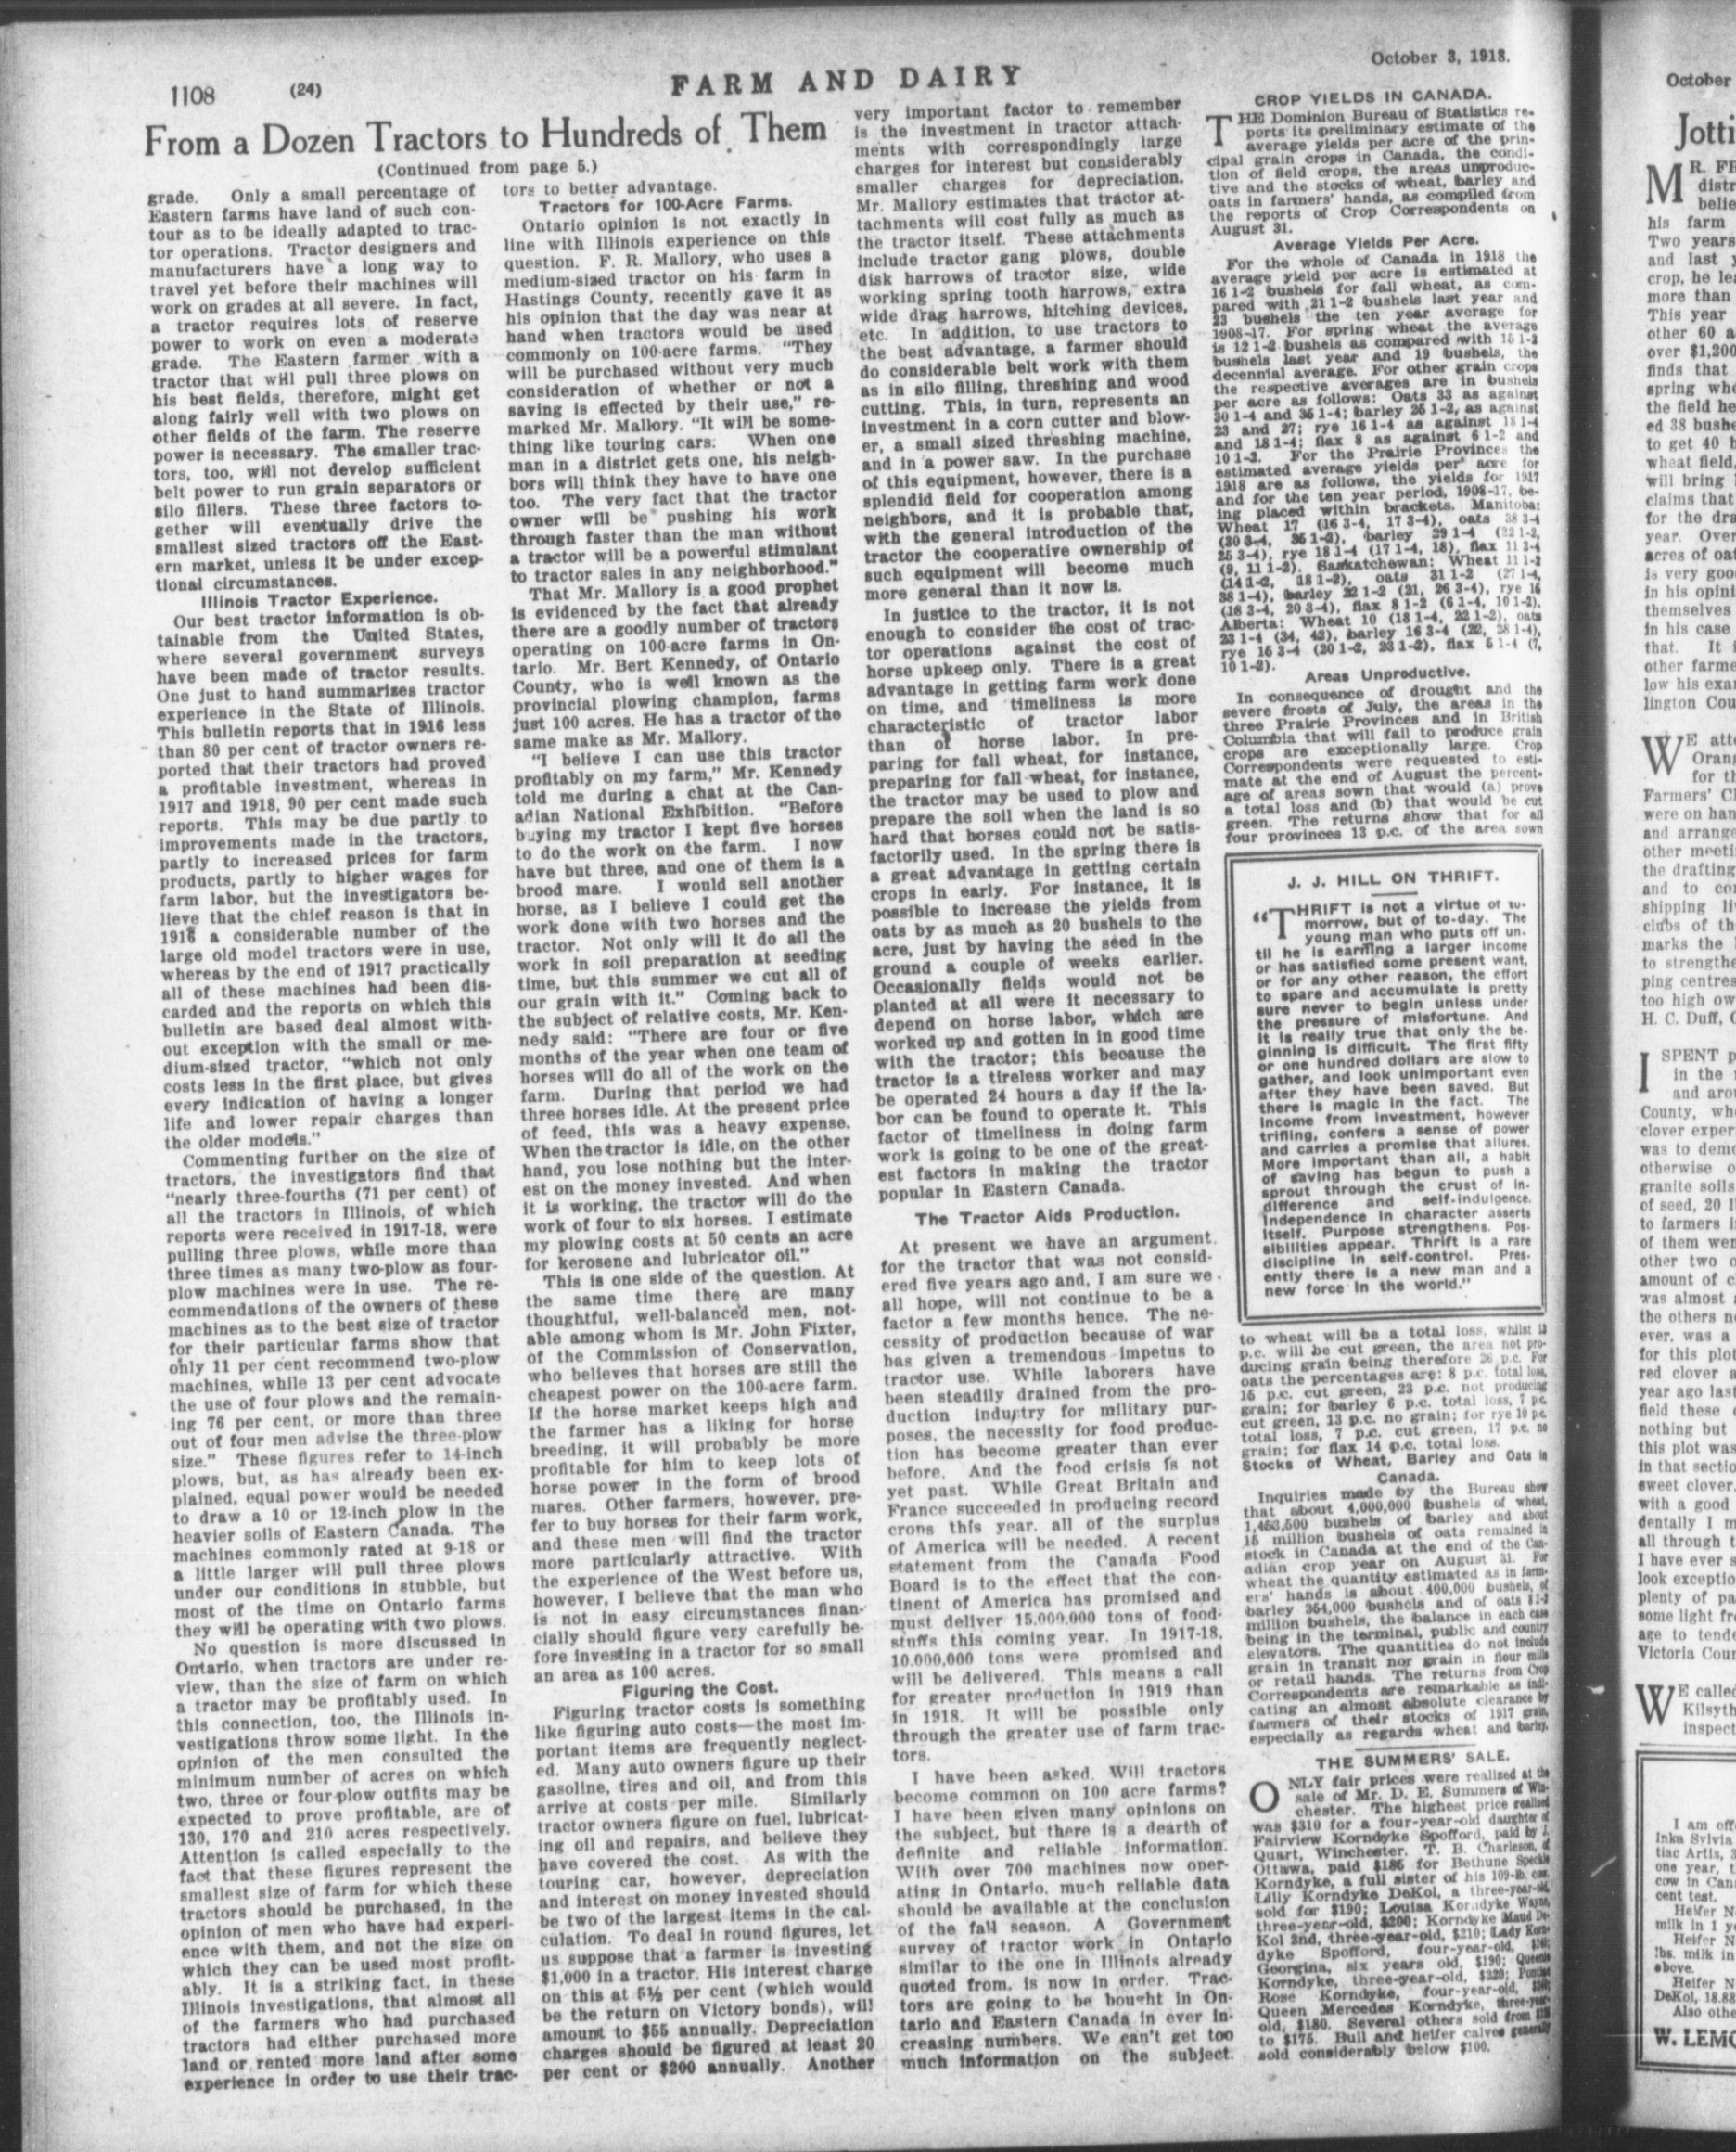 1108 (24) FARM AND DAIRY October 3, 1918.
From a Dozen Tractors to Hundreds of Them
(Continued from page 5.)
grade. Only a small percentage of
Eastern farms have land of such con-
tour as to be ideally adapted to trac-
tor operations. Tractor designers and
manufacturers have a long way to
travel yet before their machines will
work on grades at all severe. In fact,
a tractor requires lots of reserve
power to work on even a moderate
grade. The Eastern farmer with a
tractor that will pull three plows on
his best fields, therefore, might get
along fairly well with two plows on
other fields of the farm. The reserve
power is necessary. The smaller trac-
tors, too, will not develop sufficient
belt power to run grain separators or
silo fillers. These three factors to-
gether will eventually drive the
smallest sized tractors off the East-
ern market, unless it be under excep-
tional circumstances.
Illinois Tractor Experience.
Our best tractor information is ob-
tainable from the United States,
where several government surveys
have been made of tractor results.
One just to hand summarizes tractor
experience in the State of Illinois.
This bulletin reports that in 1916 less
than 80 per cent of tractor owners re-
ported that their tractors had proved
a profitable investment, whereas in
1917 and 1918, 90 per cent made such
reports. This may be due partly to
improvements made in the tractors,
partly to increased prices for farm
products, partly to higher wages for
farm labor, but the investigators be-
lieve that the chief reason is that in
1916 a considerable number of the
large old model tractors were in use,
whereas by the end of 1917 practically
all of these machines had been dis-
carded and the reports on which this
bulletin are based deal almost with-
out exception with the small or me-
dium-sized tractor, "which not only
costs less in the first place, but gives
every indication of having a longer
life and lower repair charges than
the older models."
Commenting further on the size of
tractors, the investigators find that
"nearly three-fourths (71 per cent) of
all the tractors in Illinois, of which
reports were received in 1917-18, were
pulling three plows, while more than
three times as many two-plow as four-
plow machines were in use. The re-
commendations of the owners of these
machines as to the best size of tractor
for their particular farms show that
only 11 per cent recommend two-plow
machines, while 13 per cent advocate
the use of four plows and the remain-
ing 76 per cent, or more than three
out of four men advise the three-plow
size." These figures refer to 14-inch
plows, but, as has already been ex-
plained, equal power would be needed
to draw a 10 or 12-inch plow in the
heavier soils of Eastern Canada. The
machines commonly rated at 9-18 or
a little larger will pull three plows
under our conditions in stubble, but
most of the time on Ontario farms
they will be operating with two plows.
No question is more discussed in
Ontario, when tractors are under re-
view, than the size of farm on which
a tractor may be profitably used. In
this connection, too, the Illinois in-
vestigations throw some light. In the
opinion of the men consulted the
minimum number of acres on which
two, three or four-plow outfits may be
expected to prove profitable, are of
130, 170 and 210 acres respectively.
Attention is called especially to the
fact that these figures represent the
smallest size of farm for which these
tractors should be purchased, in the
opinion of men who have had experi-
ence with them, and not the size on
which they can be used most profit-
ably. It is a striking fact, in these
Illinois investigations, that almost all
of the farmers who had purchased
tractors had either purchased more
land or rented more land after some
experience in order to use their trac-
tors to better advantage.
Tractors for 100-Acre Farms.
Ontario opinion is not exactly in
line with Illinois experience on this
question. F. R. Mallory, who uses a
medium-sized tractor on his farm in
Hastings County, recently gave it as
his opinion that the day was near at
hand when tractors would be used
commonly on 100-acre farms. "They
will be purchased without very much
consideration of whether or not a
saving is effected by their use," re-
marked Mr. Mallory. "It will be some-
thing like touring cars. When one
man in a district gets one, his neigh-
bors will think they have to have one
too. The very fact that the tractor
owner will be pushing his work
through faster than the man without
a tractor will be a powerful stimulant
to tractor sales in any neighborhood."
That Mr. Mallory is a good prophet
is evidenced by the fact that already
there are a goodly number of tractors
operating on 100-acre farms in On-
tario. Mr. Bert Kennedy, of Ontario
County, who is well known as the
provincial plowing champion, farms
just 100 acres. He has a tractor of the
same make as Mr. Mallory.
"I believe I can use this tractor
profitably on my farm," Mr. Kennedy
told me during a chat at the Can-
adian National Exhibition. "Before
buying my tractor I kept five horses
to do the work on the farm. I now
have but three, and one of them is a
brood mare. I would sell another
horse, as I believe I could get the
work done with two horses and the
tractor. Not only will it do all the
work in soil preparation at seeding
time, but this summer we cut all of
our grain with it." Coming back to
the subject of relative costs, Mr. Ken-
nedy said: "There are four or five
months of the year when one team of
horses will do all of the work on the
farm. During that period we had
three horses idle. At the present price
of feed, this was a heavy expense.
When the tractor is idle, on the other
hand, you lose nothing but the inter-
est on the money invested. And when
it is working, the tractor will do the
work of four to six horses. I estimate
my plowing costs at 50 cents an acre
for kerosene and lubricator oil."
This is one side of the question. At
the same time there are many
thoughtful, well-balanced men, not-
able among whom is Mr. John Fixter,
of the Commission of Conservation,
who believes that horses are still the
cheapest power on the 100-acre farm.
If the horse market keeps high and
the farmer has a liking for horse
breeding, it will probably be more
profitable for him to keep lots of
horse power in the form of brood
mares. Other farmers, however, pre-
fer to buy horses for their farm work,
and these men will find the tractor
more particularly attractive. With
the experience of the West before us,
however, I believe that the man who
is not in easy circumstances finan-
cially should figure very carefully be-
fore investing in a tractor for so small
an area as 100 acres.
Figuring the Cost.
Figuring tractor costs is something
like figuring auto costs—the most im-
portant items are frequently neglect-
ed. Many auto owners figure up their
gasoline, tires and oil, and from this
arrive at costs per mile. Similarly
tractor owners figure on fuel, lubricat-
ing oil and repairs, and believe they
have covered the cost. As with the
touring car, however, depreciation
and interest on money invested should
be two of the largest items in the cal-
culation. To deal in round figures, let
us suppose that a farmer is investing
$1,000 in a tractor. His interest charge
on this at 5½ per cent (which would
be the return on Victory bonds), will
amount to $55 annually. Depreciation
charges should be figured at least 20
per cent or $200 annually. Another
very important factor to remember
is the investment in tractor attach-
ments with correspondingly large
charges for interest but considerably
smaller charges for depreciation.
Mr. Mallory estimates that tractor at-
tachments will cost fully as much as
the tractor itself. These attachments
include tractor gang plows, double
disk harrows of tractor size, wide
working spring tooth harrows, extra
wide drag harrows, hitching devices,
etc. In addition, to use tractors to
the best advantage, a farmer should
do considerable belt work with them
as in silo filling, threshing and wood
cutting. This, in turn, represents an
investment in a corn cutter and blow-
er, a small sized threshing machine,
and in a power saw. In the purchase
of this equipment, however, there is a
splendid field for cooperation among
neighbors, and it is probable that,
with the general introduction of the
tractor the cooperative ownership of
such equipment will become much
more general than it now is.
In justice to the tractor, it is not
enough to consider the cost of trac-
tor operations against the cost of
horse upkeep only. There is a great
advantage in getting farm work done
on time, and timeliness is more
characteristic of tractor labor
than of horse labor. In pre-
paring for fall wheat, for instance,
preparing for fall wheat, for instance,
the tractor may be used to plow and
prepare the soil when the land is so
hard that horses could not be satis-
factorily used. In the spring there is
a great advantage in getting certain
crops in early. For instance, it is
possible to increase the yields from
oats by as much as 20 bushels to the
acre, just by having the seed in the
ground a couple of weeks earlier.
Occasionally fields would not be
planted at all were it necessary to
depend on horse labor, which are
worked up and gotten in in good time
with the tractor; this because the
tractor is a tireless worker and may
be operated 24 hours a day if the la-
bor can be found to operate it. This
factor of timeliness in doing farm
work is going to be one of the great-
est factors in making the tractor
popular in Eastern Canada.
The Tractor Aids Production.
At present we have an argument
for the tractor that was not consid-
ered five years ago and, I am sure we
all hope, will not continue to be a
factor a few months hence. The ne-
cessity of production because of war
has given a tremendous impetus to
tractor use. While laborers have
been steadily drained from the pro-
duction industry for military pur-
poses, the necessity for food produc-
tion has become greater than ever
before. And the food crisis is not
yet past. While Great Britain and
France succeeded in producing record
crops this year, all of the surplus
of America will be needed. A recent
statement from the Canada Food
Board is to the effect that the con-
tinent of America has promised and
must deliver 15,000,000 tons of food-
stuffs this coming year. In 1917-18,
10,000,000 tons were promised and
will be delivered. This means a call
for greater production in 1919 than
in 1918. It will be possible only
through the greater use of farm trac-
tors.
I have been asked, Will tractors
become common on 100 acre farms?
I have been given many opinions on
the subject, but there is a dearth of
definite and reliable information.
With over 700 machines now oper-
ating in Ontario, much reliable data
should be available at the conclusion
of the fall season. A Government
survey of tractor work in Ontario
similar to the one in Illinois already
quoted from, is now in order. Trac-
tors are going to be bought in On-
tario and Eastern Canada in ever in-
creasing numbers. We can't get too
much information on the subject.
CROP YIELDS IN CANADA.
THE Dominion Bureau of Statistics re-
ports its preliminary estimate of the
average yields per acre of the prin-
cipal grain crops in Canada, the condi-
tion of field crops, the areas unproduc-
tive and the stocks of wheat, barley and
oats in farmers' hands, as compiled from
the reports of Crop Correspondents on
August 31.
Average Yields Per Acre.
For the whole of Canada in 1918 the
average yield per acre is estimated at
16 1-2 bushels for fall wheat, as com-
pared with 21 1-2 bushels last year and
23 bushels the ten year average for
1908-17. For spring wheat the average
is 12 1-2 bushels as compared with 15 1-2
bushels last year and 19 bushels, the
decennial average. For other grain crops
the respective averages are in bushels
per acre as follows: Oats 33 as against
30 1-4 and 35 1-4; barley 25 1-2, as against
23 and 27; rye 16 1-4 as against 18 1-4
and 18 1-4; flax 8 as against 6 1-2 and
10 1-2. For the Prairie Provinces the
estimated average yields per acre for
1918 are as follows, the yields for 1917
and for the ten year period, 1908-17, be-
ing placed within brackets. Manitoba:
Wheat 17 (16 3-4, 17 3-4), oats 38 3-4
(30 3-4, 36 1-2), barley 29 1-4 (22 1-2,
25 3-4), rye 18 1-4 (17 1-4, 18), flax 11 3-4
(9, 11 1-2). Saskatchewan: Wheat 11 1-2
(14 1-2, 18 1-2), oats 31 1-2 (27 1-4,
38 1-4), barley 22 1-2 (21, 26 3-4), rye 16
(18 3-4, 20 3-4), flax 8 1-2 (6 1-4, 10 1-2).
Alberta: Wheat 10 (18 1-4, 22 1-2), oats
23 1-4 (34, 42), barley 16 3-4 (22, 28 1-4),
rye 15 3-4 (20 1-2, 23 1-2), flax 5 1-4 (7,
10 1-2).
Areas Unproductive.
In consequence of drought and the
severe frosts of July, the areas in the
three Prairie Provinces and in British
Columbia that will fail to produce grain
crops are exceptionally large. Crop
Correspondents were requested to esti-
mate at the end of August the percent-
age of areas sown that would (a) prove
a total loss and (b) that would be cut
green. The returns show that for all
four provinces 13 p.c. of the area sown
J. J. HILL ON THRIFT.
"THRIFT is not a virtue of to-
morrow, but of to-day. The
young man who puts off un-
til he is earning a larger income
or has satisfied some present want,
or for any other reason, the effort
to spare and accumulate is pretty
sure never to begin unless under
the pressure of misfortune. And
it is really true that only the be-
ginning is difficult. The first fifty
or one hundred dollars are slow to
gather, and look unimportant even
after they have been saved. But
there is magic in the fact. The
income from investment, however
trifling, confers a sense of power
and carries a promise that allures.
More important than all, a habit
of saving has begun to push a
sprout through the crust of in-
difference and self-indulgence.
Independence in character asserts
itself. Purpose strengthens. Pos-
sibilities appear. Thrift is a rare
discipline in self-control. Pres-
ently there is a new man and a
new force in the world."
to wheat will be a total loss, whilst 13
p.c. will be cut green, the area not pro-
ducing grain being therefore 26 p.c. For
oats the percentages are: 8 p.c. total loss,
15 p.c. cut green, 23 p.c. not producing
grain; for barley 6 p.c. total loss, 7 p.c.
cut green, 13 p.c. no grain; for rye 10 p.c.
total loss, 7 p.c. cut green, 17 p.c. no
grain; for flax 14 p.c. total loss.
Stocks of Wheat, Barley and Oats in
Canada.
Inquiries made by the Bureau show
that about 4,000,000 bushels of wheat,
1,453,500 bushels of barley and about
15 million bushels of oats remained in
stock in Canada at the end of the Can-
adian crop year on August 31. For
wheat the quantity estimated as in farm-
ers' hands is about 400,000 bushels, of
barley 354,000 bushels and of oats
million bushels, the balance in each case
being in the terminal, public and country
elevators. The quantities do not include
grain in transit nor grain in flour mills
or retail hands. The returns from Crop
Correspondents are remarkable as indi-
cating an almost absolute clearance by
farmers of their stocks of 1917 grain,
especially as regards wheat and barley.
THE SUMMERS' SALE.
ONLY fair prices were realized at the
sale of Mr. D. E. Summers of Win-
chester. The highest price realized
was $310 for a four-year-old daughter of
Fairview Korndyke Spofford, paid by J.
Quart, Winchester. T. B. Charleson, of
Ottawa, paid $185 for Bethune Speckle
Korndyke, a full sister of his 109-lb. cow.
Lilly Korndyke DeKol, a three-year-old,
sold for $190; Louisa Korndyke Wayne,
three-year-old, $200; Korndyke Maud De-
Kol 2nd, three-year-old, $210; Lady Korn-
dyke Spofford, four-year-old,
Georgina, six years old, $190; Queenie
Korndyke, three-year-old, $220; Pontiac
Rose Korndyke, four-year-old,
Queen Mercedes Korndyke, three-year-
old, $180. Several others sold from
to $175. Bull and heifer calves generally
sold considerably below $100.
October
Jotti
MR. FR
distr
belie
his farm
Two years
and last y
crop, he lea
more than
This year
other 60 a
over $1,200
finds that
spring whe
the field he
ed 38 bushe
to get 40 b
wheat field,
will bring
claims that
for the dra
year. Over
acres of oat
is very goo
in his opini
themselves
in his case
that. It i
other farme
low his exam
lington Cou
WE atte
Orang
for th
Farmers' Cl
were on han
and arrange
other meeti
the drafting
and to con
shipping li
clubs of th
marks the
to strengthe
ping centres
too high ow
H. C. Duff, C
I SPENT p
in the
and arou
County, wh
clover exper
was to demo
otherwise o
granite soils
of seed, 20 l
to farmers i
of them wer
other two o
amount of c
was almost
the others n
ever, was a
for this plot
red clover a
year ago last
field these
nothing but
this plot was
in that sectio
sweet clover.
with a good
dentally I m
all through t
I have ever s
look exceptio
plenty of pa
some light fr
age to tende
Victoria Coun
WE called
Kilsyth
inspect
I am offe
Inka Sylvia
tiac Artis, 3
one year, t
cow in Can
cent test.
Heifer N
milk in 1 y
Heifer N
lbs. milk in
above.
Heifer N
DeKol, 18.88
Also othe
W. LEMO